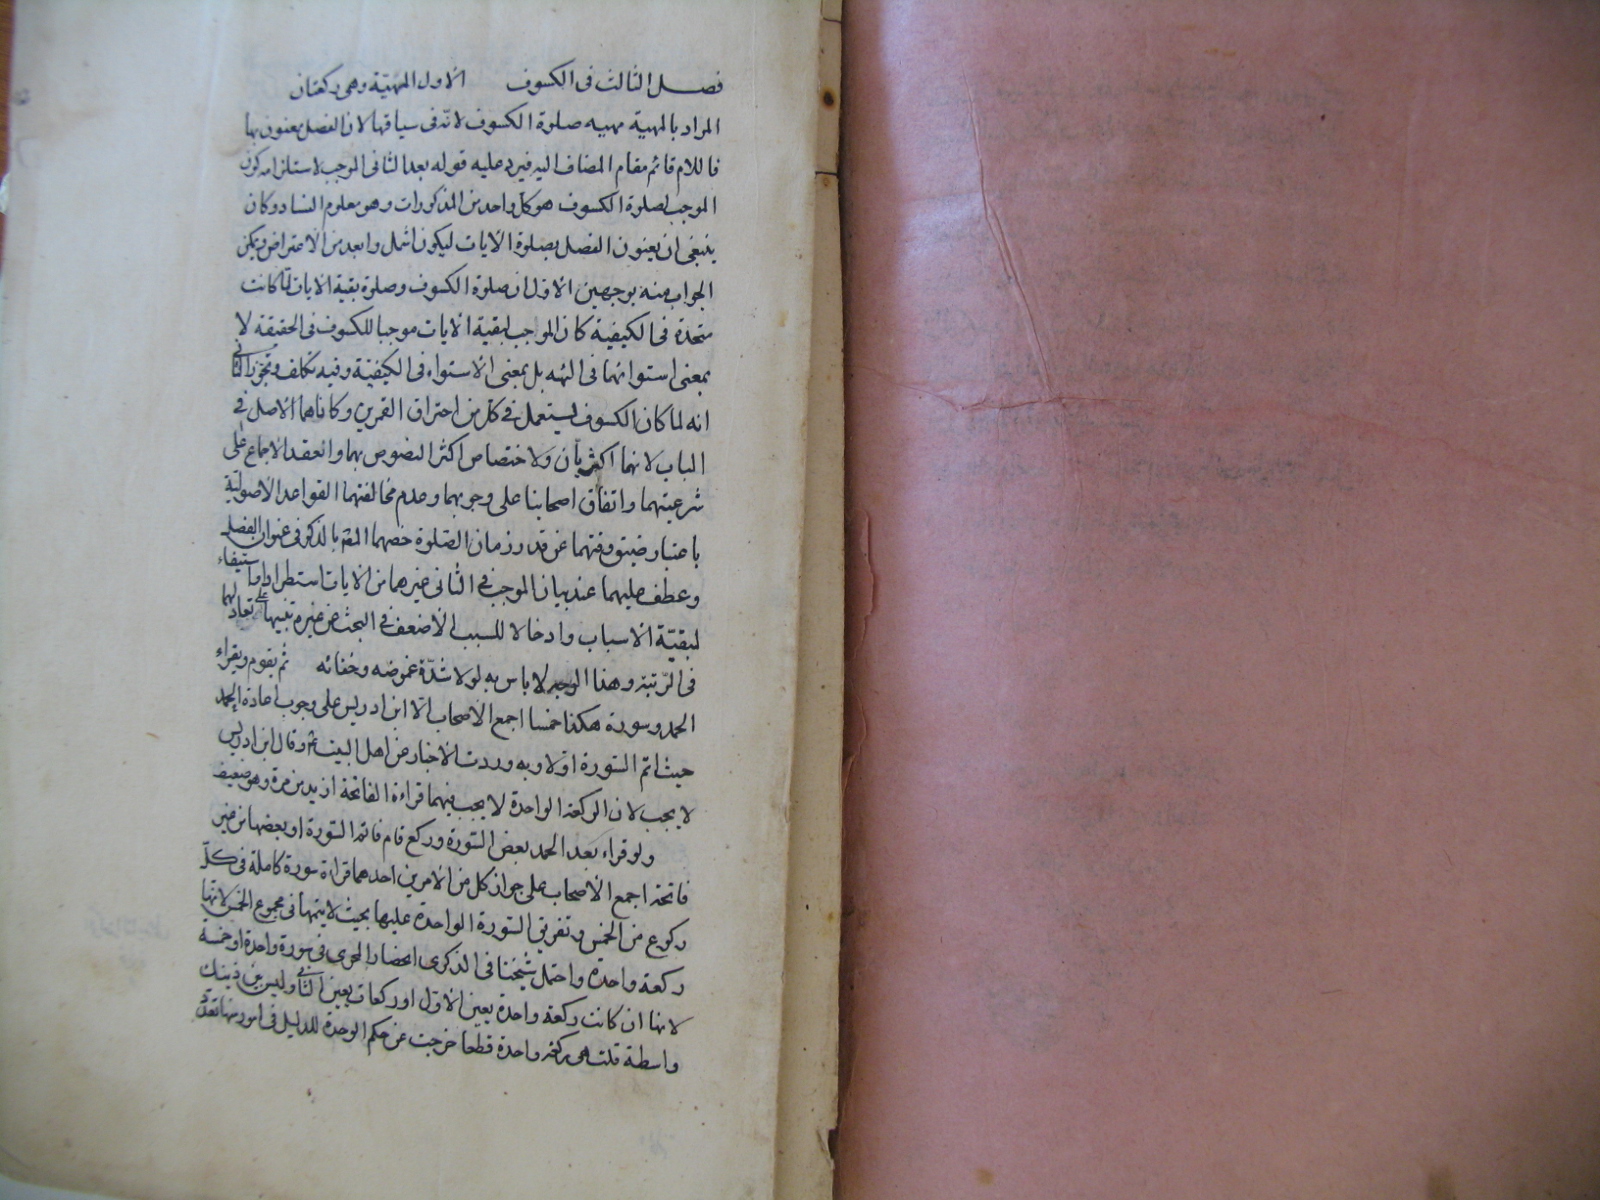 فصل الثالث فى الكسوف الاول المهية وهى ركعتان
المراد بالمهية مهيه صلوة الكسوف لانه فى سياقها لان الفصل معنون بها
فاللام قائم مقام المضاف اليه فيرد عليه قوله بعد الثانى الموجب لاستلزامه كون
الموجب لصلوة الكسوف هو كل واحد من المذكورات وهو معلوم الفساد وكان
ينبغى ان يعنون الفصل بصلوة الايات ليكون اشمل وابعد من الاعتراض ويمكن
الجواب منه بوجهين الاول ان صلوة الكسوف وصلوة بقية الايات لما كانت
متحدة فى الكيفية كان الموجب لبقية الايات موجبا للكسوف فى الحقيقه لا
بمعنى استوائهما فى بل بمعنى الاستواء فى الكيفية وفيه تكلف وتجوز الثانى
انه لما كان الكسوف يستعمل فى كل من احتراق القمرين وكانا هما الاصل فى
الباب لانهما اكثر ولاختصاص اكثر النصوص بهما وانعقد الاجماع على
شرعيتهما واتفاق اصحابنا على وجوبهما وعدم مخالفتهما القواعد الاصولية
باعتبار ضيق وقتهما عن قدر زمان الصلوة خصهما المصر بالذكر فى عنوان الفصل
وعطف عليهما عند بيان الموجب فى الثانى غيرهما من الايات استطرادا واستيفاء
لبقية الاسباب وادخالا للسبب الاضعف فى البحث عن غيره تنبيها على تعادلهما
فى الرتبة وهذا الوجه لا باس به لولا شدة غموضه وخفائه ثم يقوم ويقراء
الحمد وسورة هكذا خمسا اجمع الاصحاب الا ابن ادريس على وجوب اعادة الحمد
حيث اتم السورة اولا وبه وردت الاخبار عن اهل البيت وقال ابن ادريس
لا يجب لان الركعة الواحدة لا يجب فيهما قراءة الفاتحة ازيد من مرة وهو ضعيف
ولو قراء بعد الحمد بعض السورة وركع قام فاتم السورة او بعضها من غير
فاتحة اجمع الاصحاب على جواز كل من الامرين احدهما قراءة سورة كاملة فى كل
ركوع من الخمس وتفريق السورة الواحدة عليها بحيث لا يتمها فى مجموع الخمس لانها
ركعة واحدة واحتمل شيخنا فى الذكرى انحصار المجزى فى سورة واحدة او خمسة
لانها ان كانت ركعة واحدة يعين الاول او ركعات يعين الثانى وليس بين ذينك
واسطة قلت هى ركعة واحدة قطعا خرجت عن حكم الوحدة للدليل فى امور منها تعدد